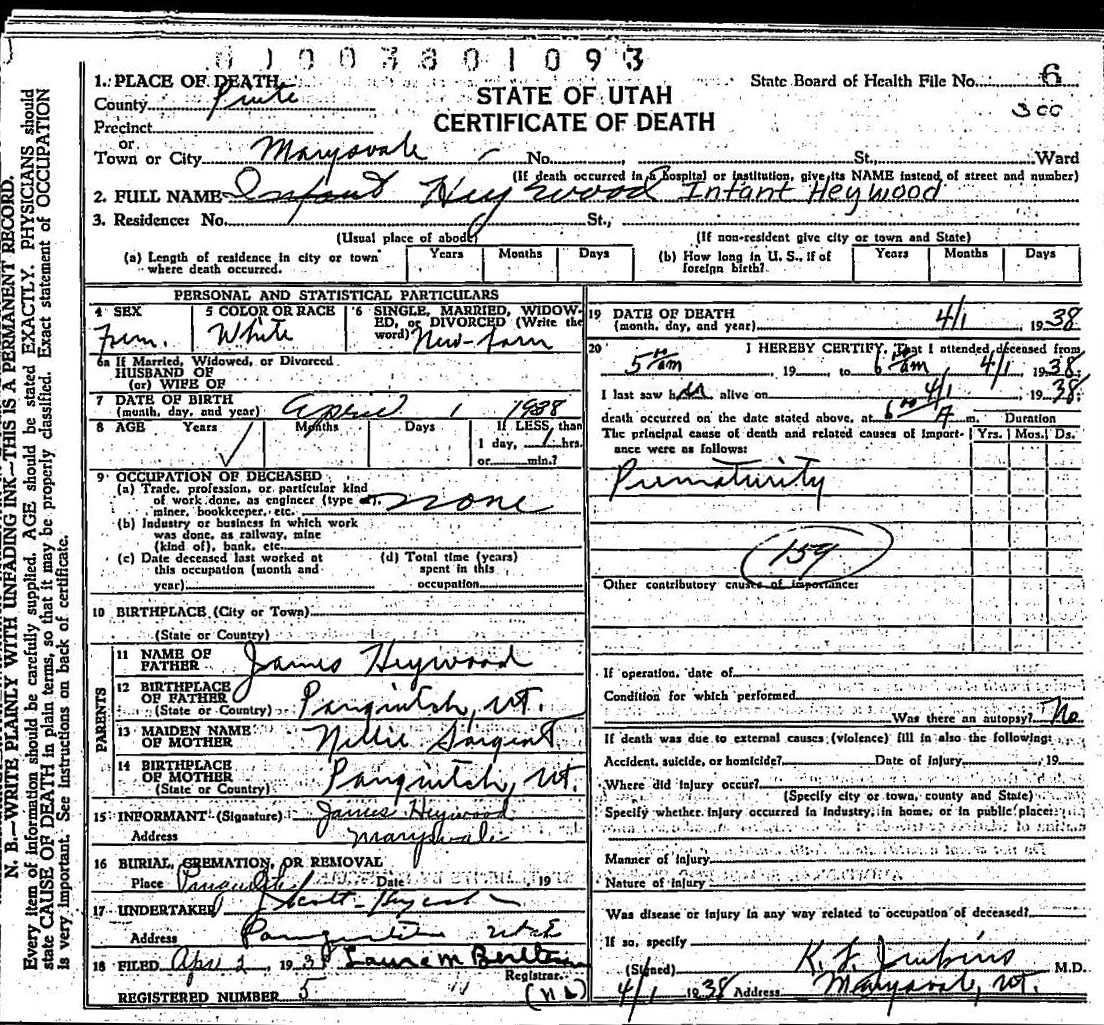 61003801093
1. PLACE OF DEATH
State Board of Health File No. 6
County Piute
STATE OF UTAH
300
Precinct
CERTIFICATE OF DEATH
or
Town or City Marysvale No. St., Ward
(If death occurred in a hospital or institution, give its NAME instead of street and number)
2. FULL NAME Infant Heywood Infant Heywood
3. Residence: No. St.,
(Usual place of abode) (If non-resident give city or town and State)
(a) Length of residence in city or town where death occurred. Years Months Days (b) How long in U. S., if of foreign birth? Years Months Days
PERSONAL AND STATISTICAL PARTICULARS
4 SEX 5 COLOR OR RACE 6 SINGLE, MARRIED, WIDOW-
ED, or DIVORCED (Write the
Fem. White word) New-born
6a If Married, Widowed, or Divorced
HUSBAND OF
(or) WIFE OF
7 DATE OF BIRTH
(month, day, and year) April 1 1938
8 AGE Years Months Days If LESS than
1 day, 1 hrs.
or min.?
9 OCCUPATION OF DECEASED
(a) Trade, profession, or particular kind
of work done, as engineer (type of) none
miner, bookkeeper, etc.
(b) Industry or business in which work
was done, as railway, mine
(kind of), bank, etc.
(c) Date deceased last worked at (d) Total time (years)
this occupation (month and spent in this
year) occupation
10 BIRTHPLACE (City or Town)
(State or Country)
PARENTS
11 NAME OF
FATHER James Heywood
12 BIRTHPLACE
OF FATHER
(State or Country) Panguitch, Ut.
13 MAIDEN NAME
OF MOTHER Nellie Sargent
14 BIRTHPLACE
OF MOTHER
(State or Country) Panguitch, Ut.
15 INFORMANT (Signature) James Heywood
Address Marysvale
16 BURIAL, CREMATION, OR REMOVAL
Place Panguitch Date , 19
17 UNDERTAKER
Address Panguitch Utah
18 FILED Apr 2, 1938 Laura M
Registrar.
REGISTERED NUMBER 5
19 DATE OF DEATH
(month, day, and year) 4/1 1938
20 I HEREBY CERTIFY, That I attended deceased from
5 00 am , 19 , to 6 00 am 4/1 1938
I last saw her alive on 4/1 , 1938
death occurred on the date stated above, at 6 00 A m. Duration
The principal cause of death and related causes of import- Yrs. Mos. Ds.
ance were as follows:
Prematurity
159
Other contributory causes of importance:
If operation, date of
Condition for which performed
Was there an autopsy? No
If death was due to external causes (violence) fill in also the following:
Accident, suicide, or homicide? Date of Injury , 19
Where did injury occur?
(Specify city or town, county and State)
Specify whether injury occurred in industry, in home, or in public place:
Manner of injury
Nature of injury
Was disease or injury in any way related to occupation of deceased?
If so, specify
(Signed) K. F. Jenkins M.D.
4/1 1938 Address Marysvale, Ut.
N. B.—WRITE PLAINLY WITH UNFADING INK—THIS IS A PERMANENT RECORD.
Every item of information should be carefully supplied. AGE should be stated EXACTLY. PHYSICIANS should
state CAUSE OF DEATH in plain terms, so that it may be properly classified. Exact statement of OCCUPATION
is very important. See instructions on back of certificate.